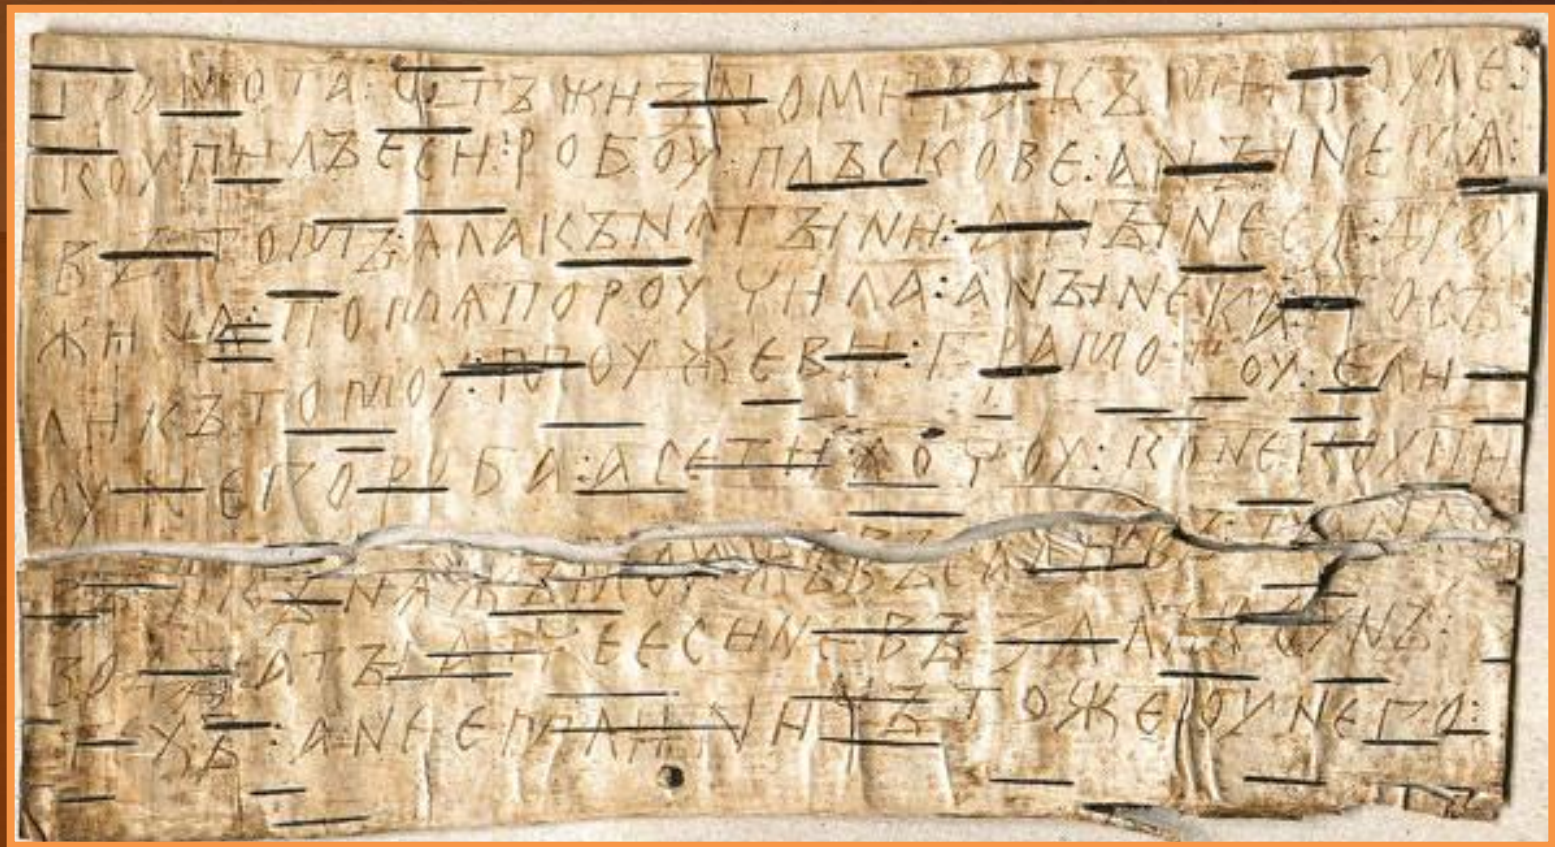 ГРАМОТА:ѠТЪЖИЗНОМИРА:КЪМИКОУЛЕ:
КОУПИЛЪЕСИ:РОБОУ:ПЛЪСКОВЕ:АНЪІНЕМѦ:
ВЪТОМЪ:АЛАКЪНѦГЪІНИ:АНЪІНЕСѦ:ДРОУ
ЖИНА:ПОМѦПОРОУЧИЛА:АНЪІНЕКА:ПОСЪ
ЛИКЪТОМОУ:МОУЖЕВИ:ГРАМОТОУ:ЕЛИ
ОУНЕГОРОБА:АСЕТИХОЧОУ:КОНЕКОУПИ
ВЪ:ИКЪНѦЖЪМОУЖЪВЪСАДИВЪ:ТАНАСЪ
ВОДЪІ:АТЪІАТЧЕЕСИНЕВЪЗАЛЪКОУНЪ:
ТЕХЪ:АНЕЕМЛИНИЧЪТОЖЕОУНЕГО: